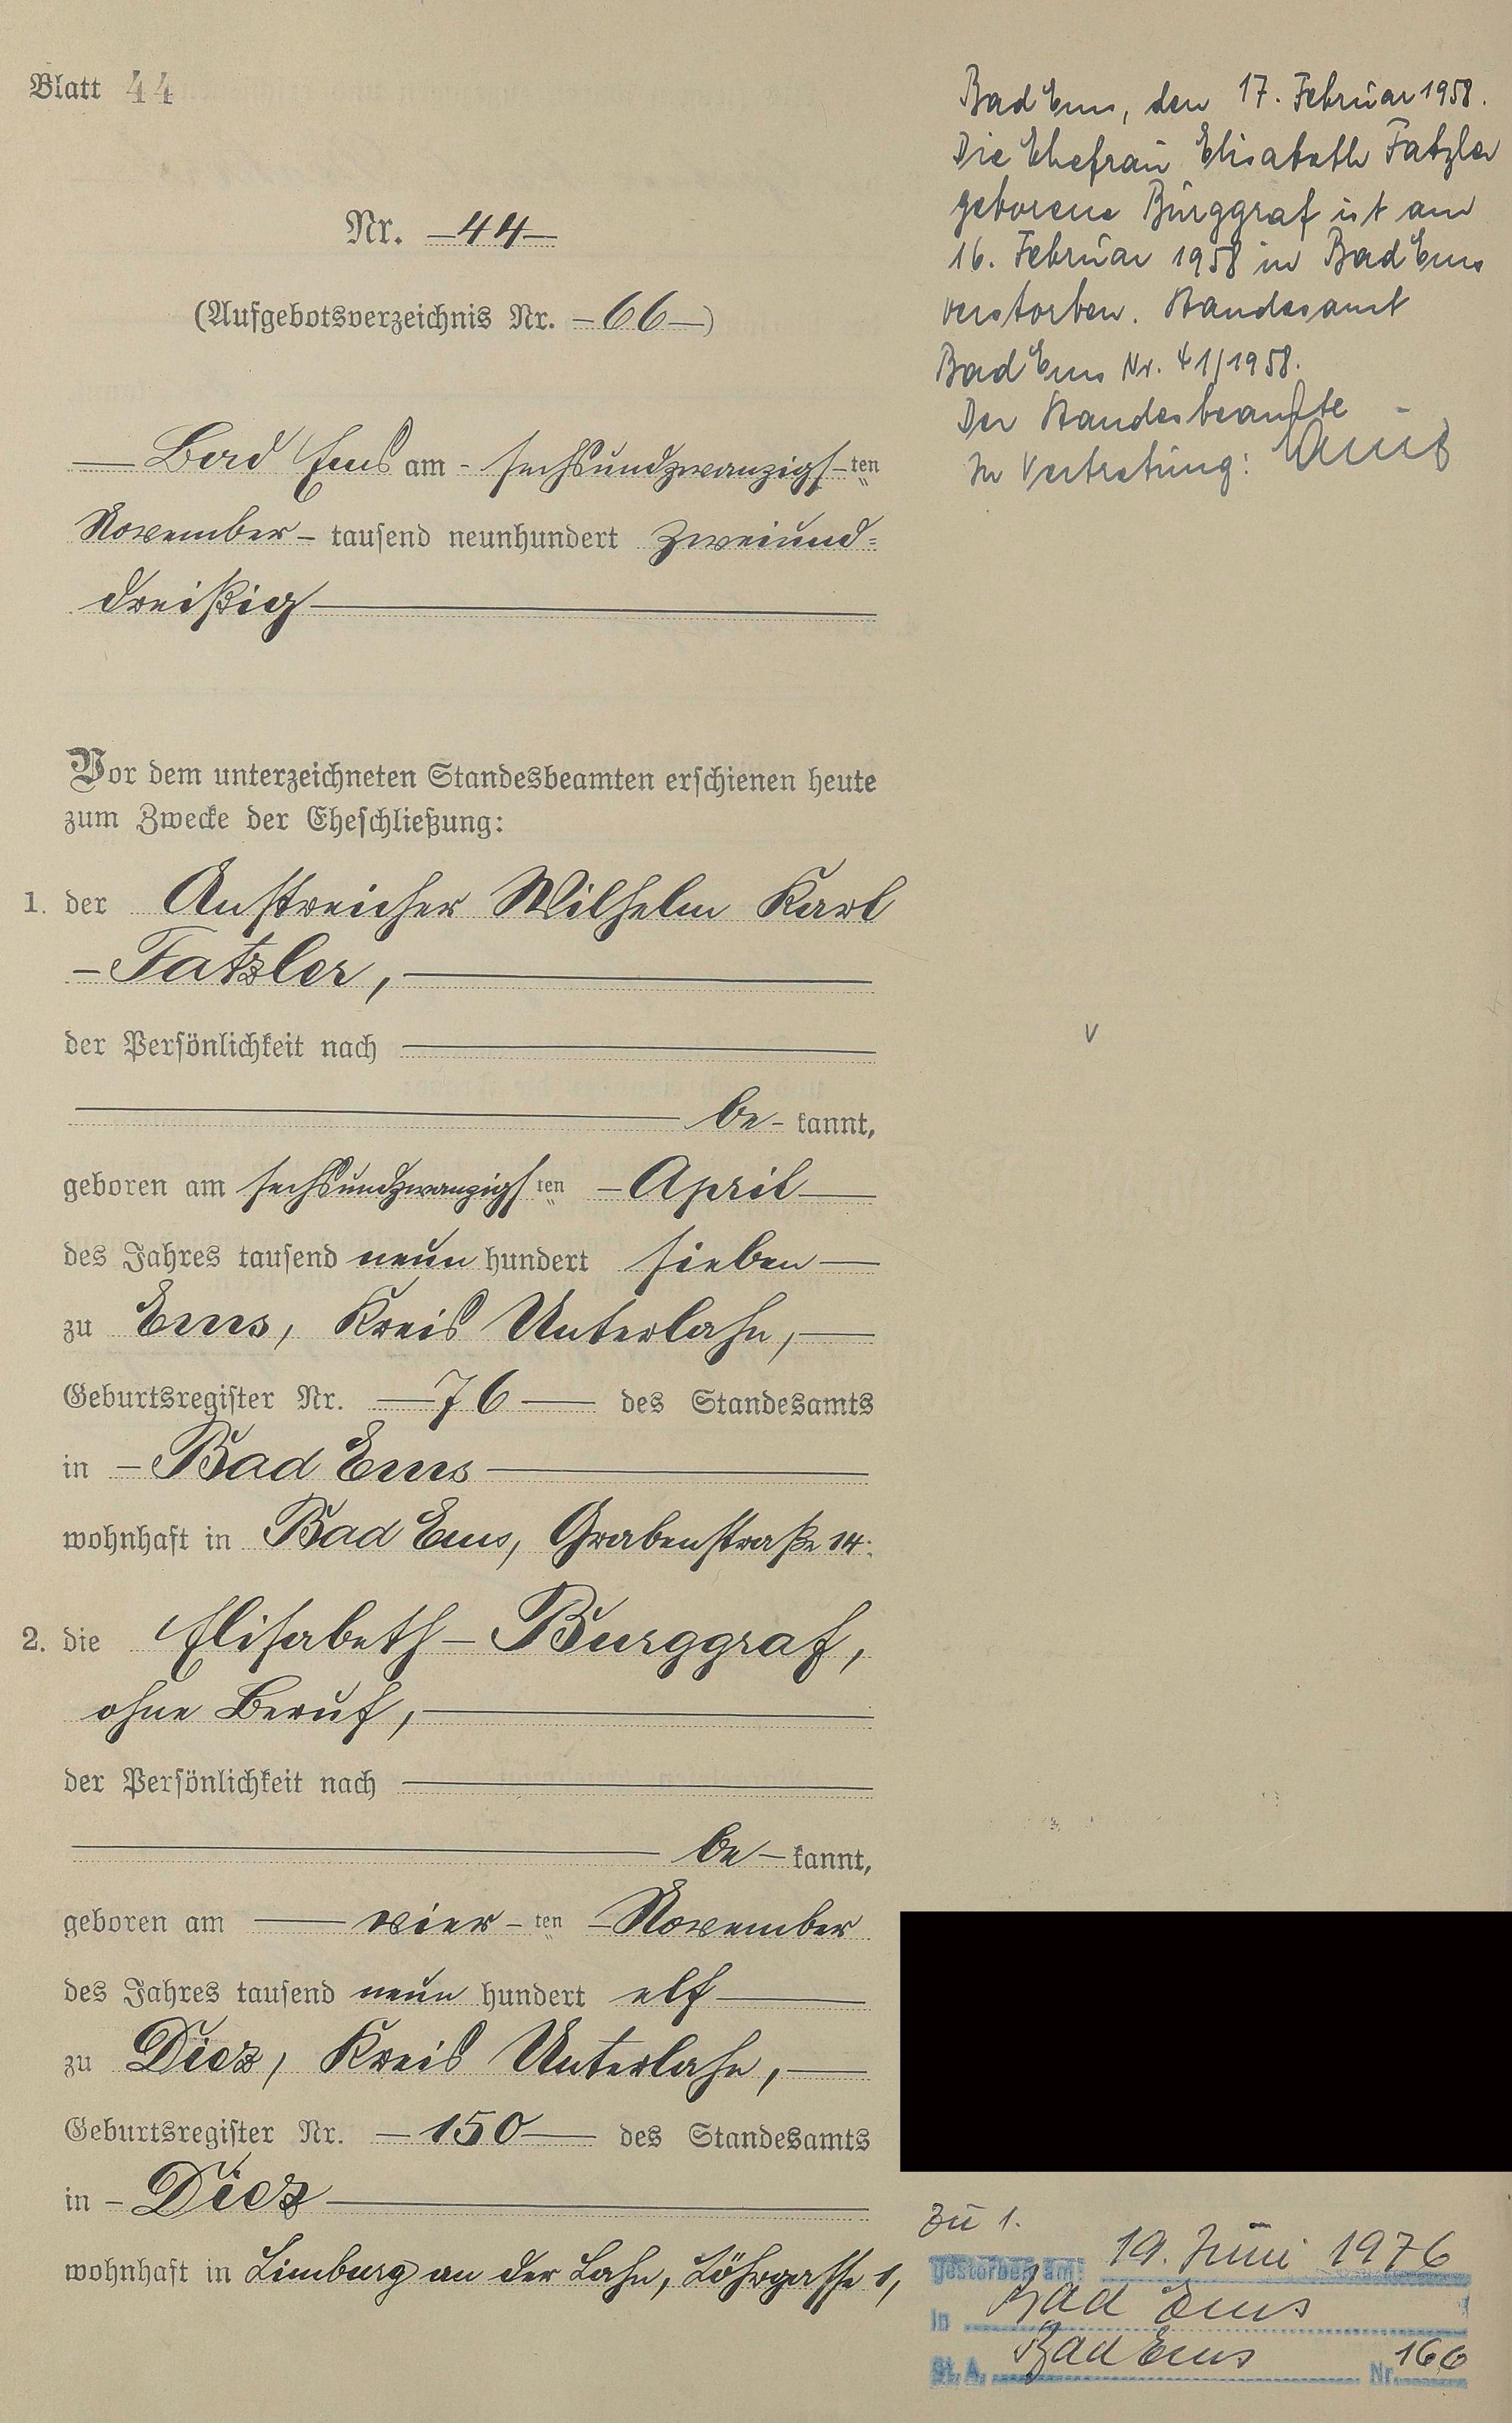 Blatt 44
Nr. 44
(Aufgebotsverzeichnis Nr. 66)
Bad Ems am sechsundzwanzigsten
November tausend neunhundert zweiund=
dreißig
Vor dem unterzeichneten Standesbeamten erschienen heute
zum Zwecke der Eheschließung:
1. der Anstreicher Wilhelm Karl
Fatzler,
der Persönlichkeit nach
be- kannt,
geboren am sechsundzwanzigsten April
des Jahres tausend neun hundert sieben
zu Ems, Kreis Unterlahn,
Geburtsregister Nr. 76 des Standesamts
in Bad Ems
wohnhaft in Bad Ems, Grabenstraße 14.
2. die Elisabeth Burggraf,
ohne Beruf,
der Persönlichkeit nach
be- kannt,
geboren am vier ten November
des Jahres tausend neun hundert elf
zu Diez, Kreis Unterlahn,
Geburtsregister Nr. 150 des Standesamts
in Diez
wohnhaft in Limburg an der Lahn, Löhrgasse 1,
Bad Ems, den 17. Februar 1958.
Die Ehefrau Elisabeth Fatzler
geborene Burggraf ist am
16. Februar 1958 in Bad Ems
verstorben. Standesamt
Bad Ems Nr. 41/1958.
Der Standesbeamte
In Vertretung:
Zu 1.
gestorben am: 19. Juni 1976
in Bad Ems
St. A. Bad Ems Nr. 166